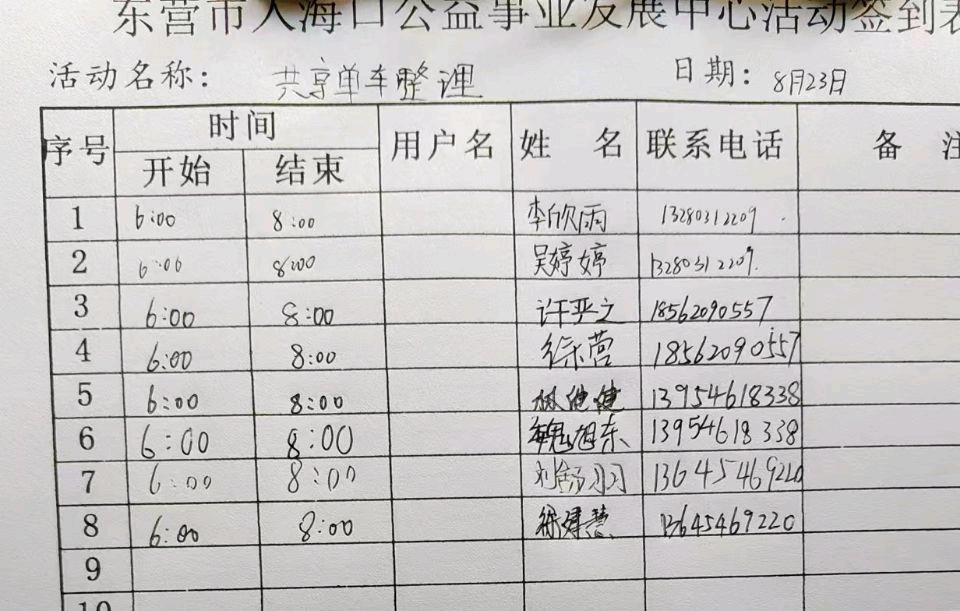 东营市入海口公益事业发展中心活动签到表
活动名称: 共享单车整理 日期: 8月23日
序号 时间 用户名 姓 名 联系电话 备 注
开始 结束
1 6:00 8:00 李欣雨 13280312209
2 6:00 8:00 吴婷婷 13280312209
3 6:00 8:00 许亚文 18562090557
4 6:00 8:00 徐营 18562090557
5 6:00 8:00 健 13954618338
6 6:00 8:00 魏旭东 13954618338
7 6:00 8:00 刘舒羽 13645469220
8 6:00 8:00 徐建慧 13645469220
9
10